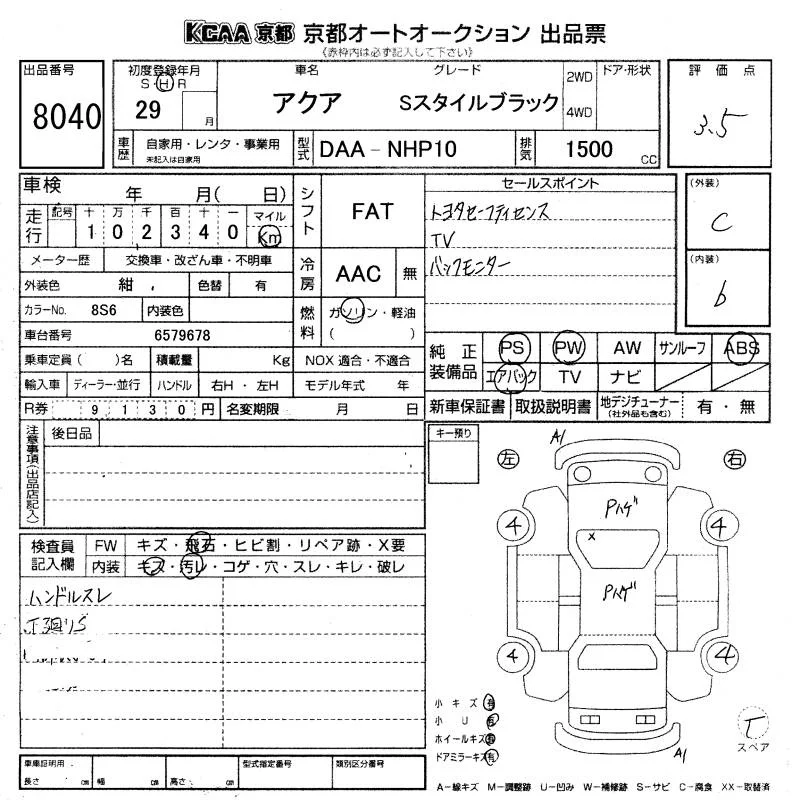 KCAA 京都 京都オートオークション 出品票
《赤枠内は必ず記入して下さい》
出品番号
8040
初度登録年月
S・H・R
29 月
車名
アクア
グレード
Sスタイルブラック
2WD
4WD
ドア・形状
評価点
3.5
車歴
自家用・レンタ・事業用
未記入は自家用
型式
DAA-NHP10
排気
1500 CC
車検 年 月( 日)
走行
記号 十 万 千 百 十 一 マイル
1 0 2 3 4 0 Km
シフト
FAT
メーター歴 交換車・改ざん車・不明車
冷房
AAC 無
外装色 紺 色替 有
カラーNo. 8S6 内装色
燃料
ガソリン・軽油
( )
車台番号 6579678
乗車定員( )名 積載量 Kg NOX 適合・不適合
輸入車 ディーラー・並行 ハンドル 右H・左H モデル年式 年
R券 9130円 名変期限 月 日
セールスポイント
トヨタセーフティセンス
TV
バックモニター
(外装)
C
(内装)
b
純正装備品
PS PW AW サンルーフ ABS
エアバック TV ナビ
新車保証書 取扱説明書 地デジチューナー (社外品も含む) 有・無
注意事項(出品店記入)
後日品
キー預り
検査員記入欄
FW キズ・飛石・ヒビ割・リペア跡・X要
内装 キズ・汚レ・コゲ・穴・スレ・キレ・破レ
ハンドルスレ
下廻りS
左 右
A1
Pハゲ
4 4
x
Pハゲ
4 4
A1
小キズ 有
小U 有
ホイールキズ 有
ドアミラーキズ 有
T
スペア
車庫証明用
長さ cm 幅 cm 高さ cm
型式指定番号
類別区分番号
A−線キズ M−調整跡 U−凹み W−補修跡 S−サビ C−腐食 XX−取替済